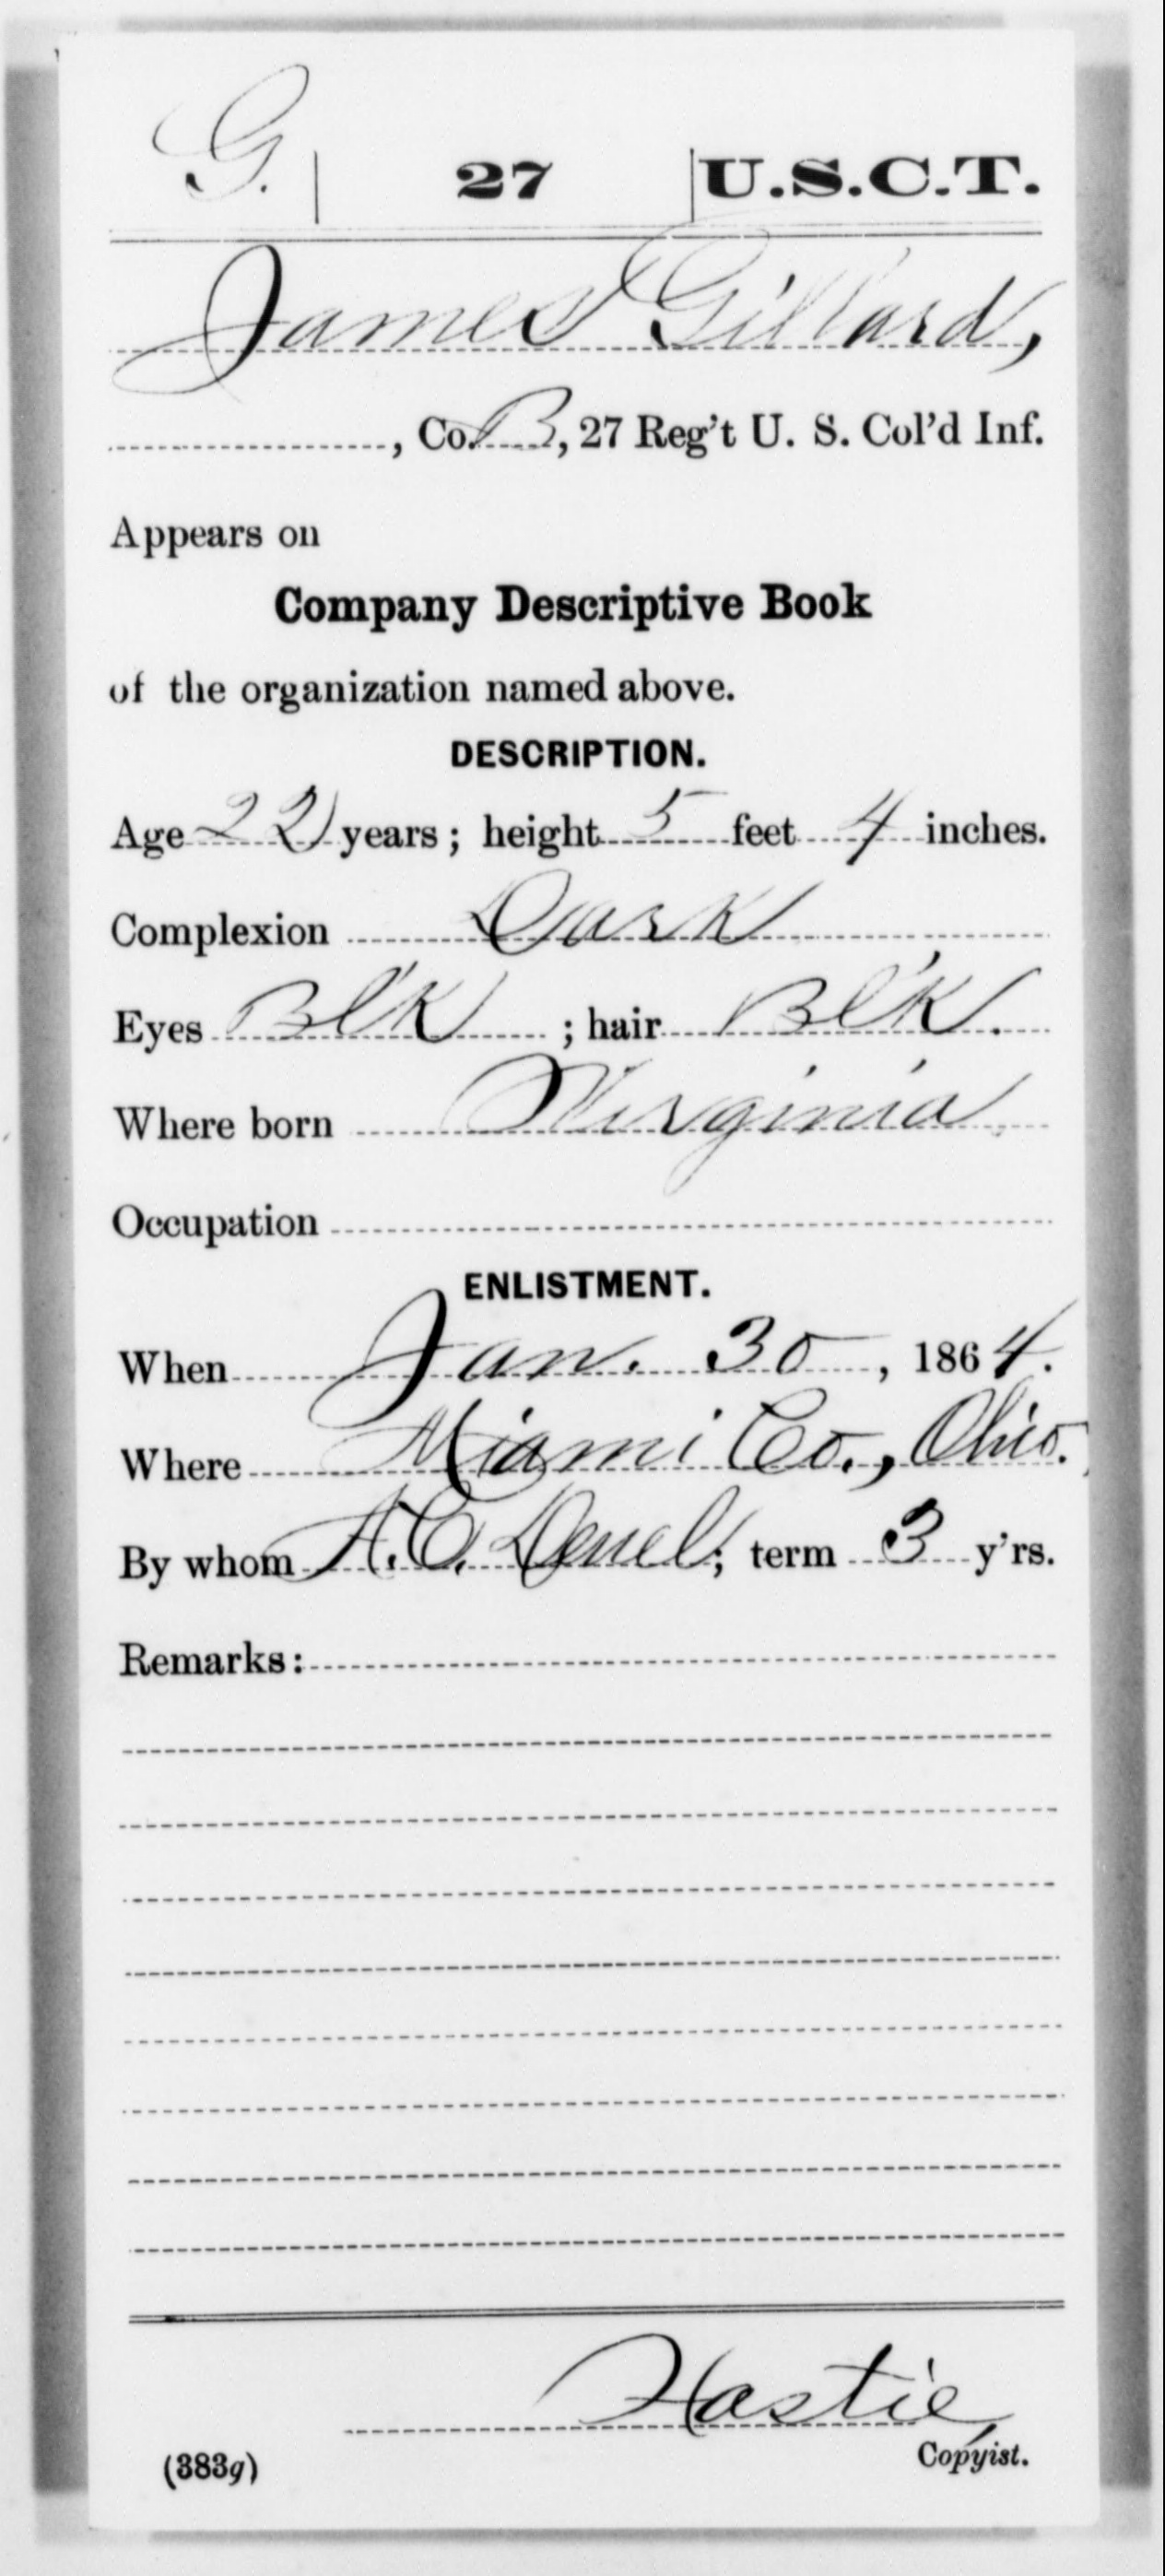 G. | 27 | U.S.C.T.
James Gillard,
, Co. B, 27 Reg't U. S. Col'd Inf.
Appears on
Company Descriptive Book
of the organization named above.
DESCRIPTION.
Age 22 years; height 5 feet 4 inches.
Complexion Dark
Eyes Bl'k ; hair Bl'k.
Where born Virginia
Occupation
ENLISTMENT.
When Jan. 30, 1864.
Where Miami Co., Ohio.
By whom A.C. Deuel; term 3 y'rs.
Remarks:
Hastie
Copyist.
(383g)